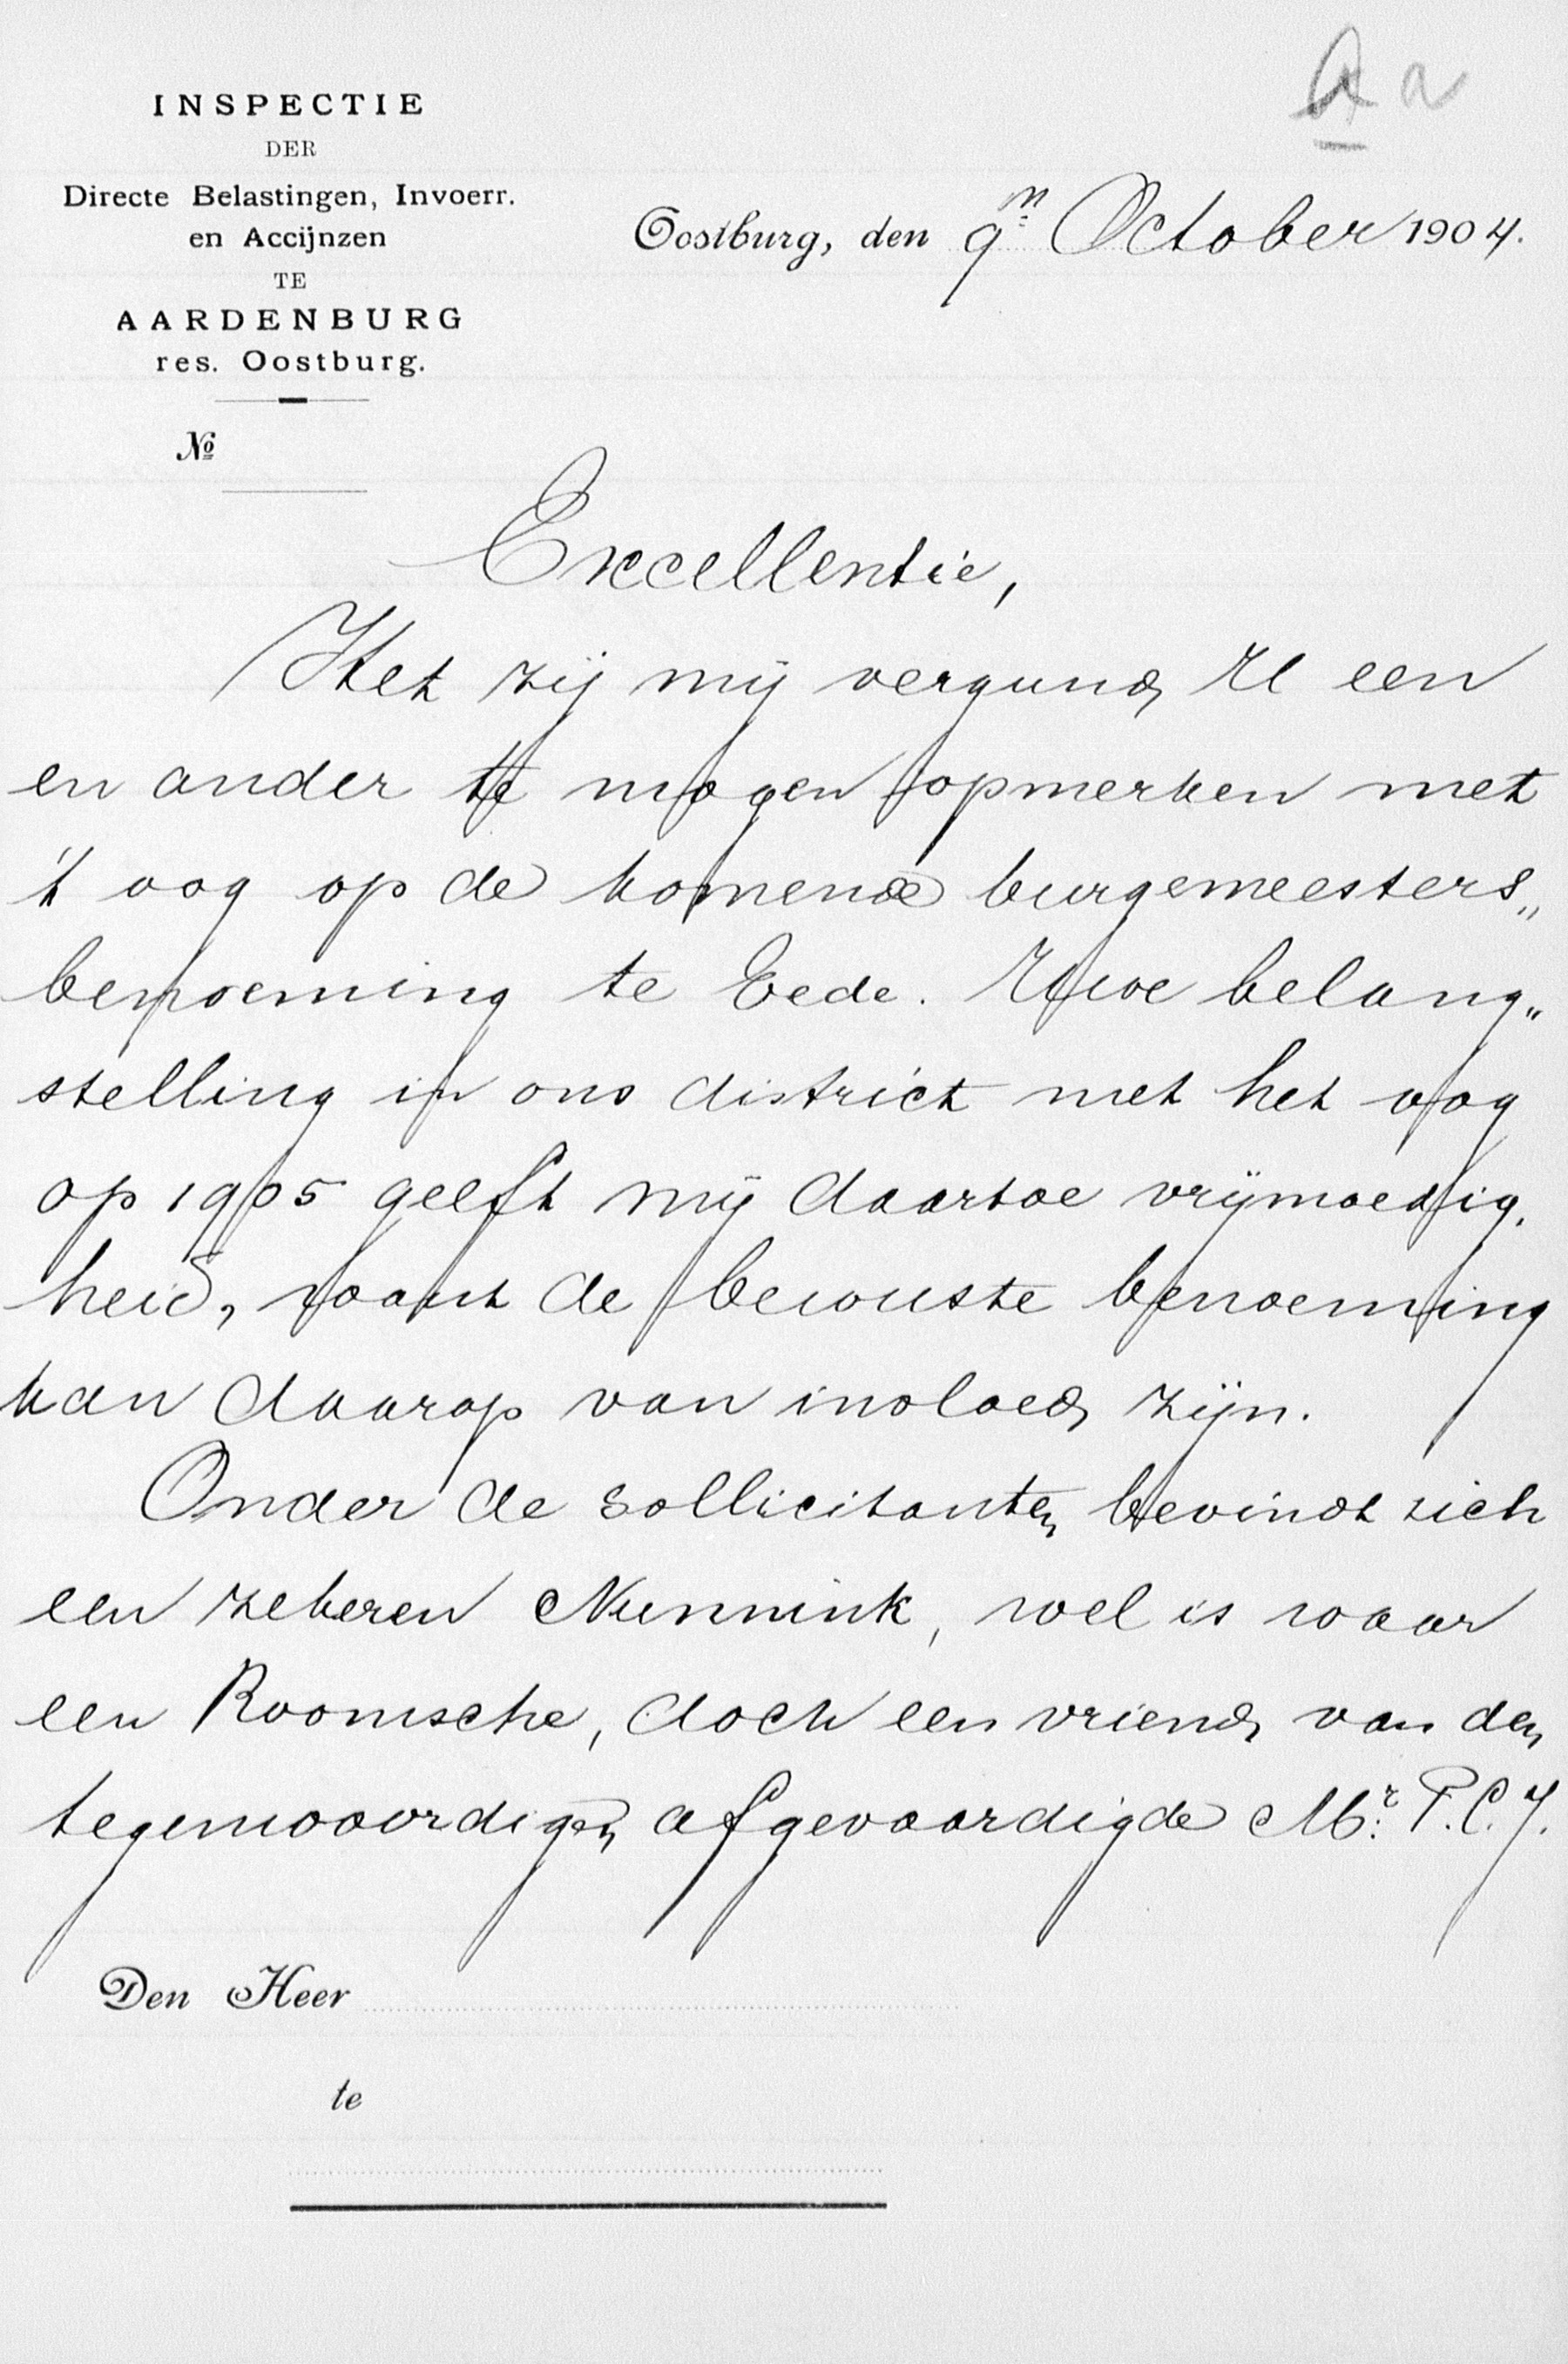 A a
INSPECTIE
DER
Directe Belastingen, Invoerr.
en Accijnzen
TE
AARDENBURG
res. Oostburg.
Nº
Oostburg, den 9n October 1904.
Excellentie,
Het zij mij vergund U een
en ander te mogen opmerken met
't oog op de komende burgemeesters„
benoeming te Eede. Uwe belang„
stelling in ons district met het oog
op 1905 geeft mij daartoe vrijmoedig.
heid, want de bewuste benoeming
kan daarop van invloed zijn.
Onder de sollicitanten bevindt zich
een zekeren Nunnink, wel is waar
een Roomsche, doch een vriend van den
tegenwoordigen afgevaardigde Mr. P.C.J.
Den Heer
te